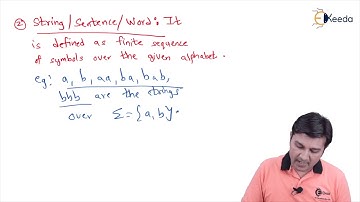 ② String/Sentence/Word: It
is defined as finite sequence
of symbols over the given alphabet.
eg: a, b, aa, ba, bab,
bbb are the strings
over Σ = {a, b}.
Ekeeda